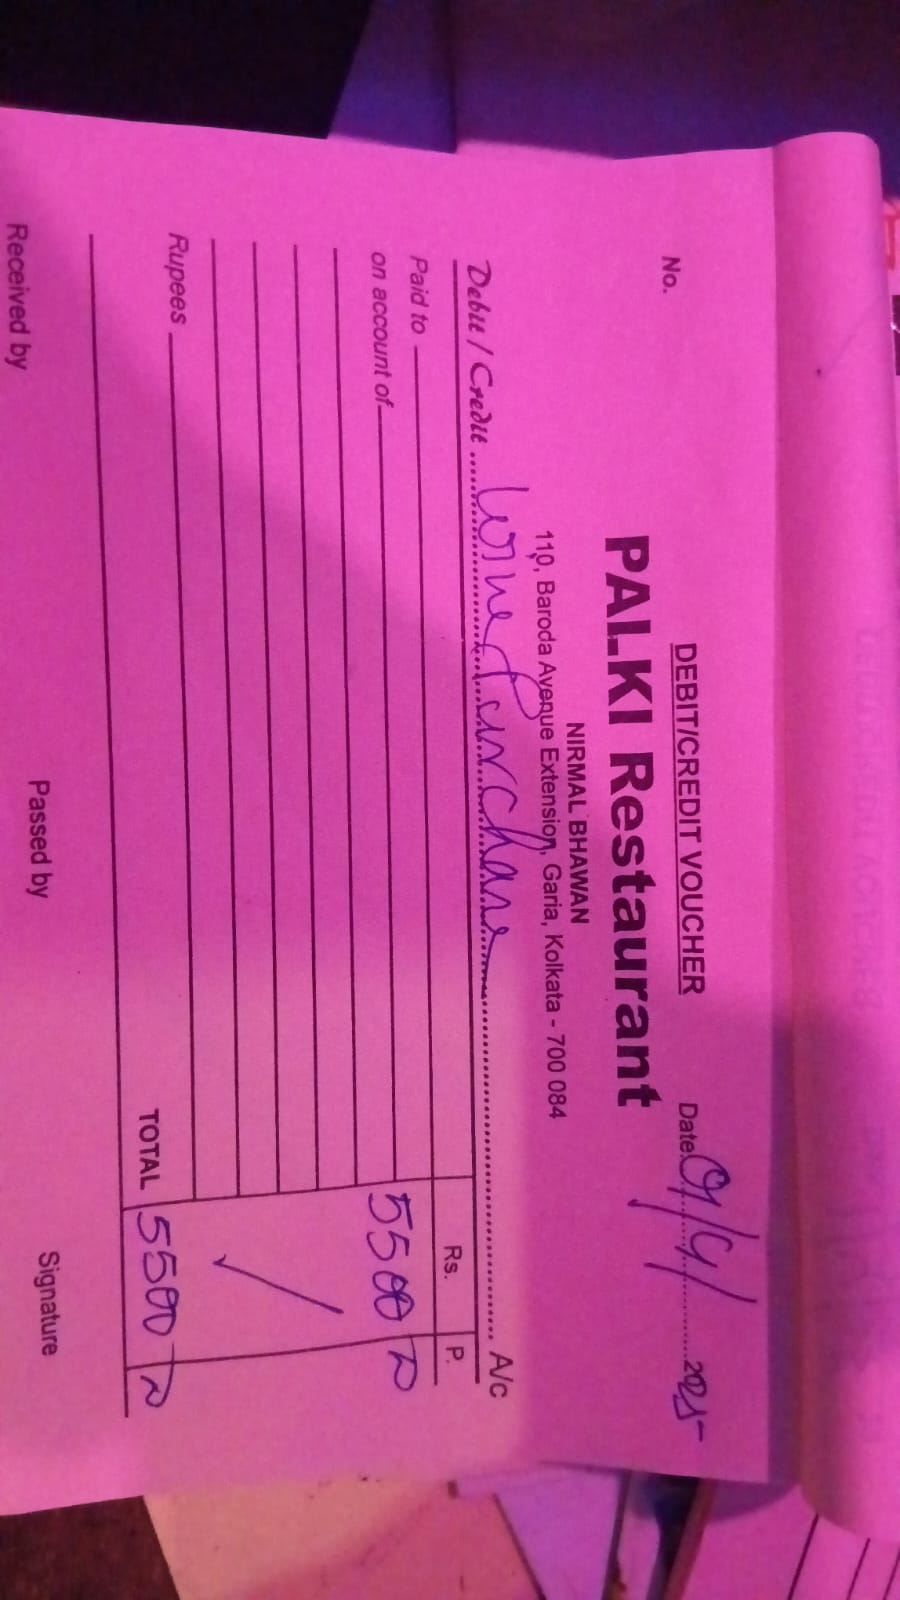 DEBIT/CREDIT VOUCHER
No. Date 09/9/ 2025
PALKI Restaurant
NIRMAL BHAWAN
110, Baroda Avenue Extension, Garia, Kolkata - 700 084
Debit / Credit Purchase A/c
Rs. P.
Paid to
on account of 5500
Rupees
TOTAL 5500
Received by Passed by Signature